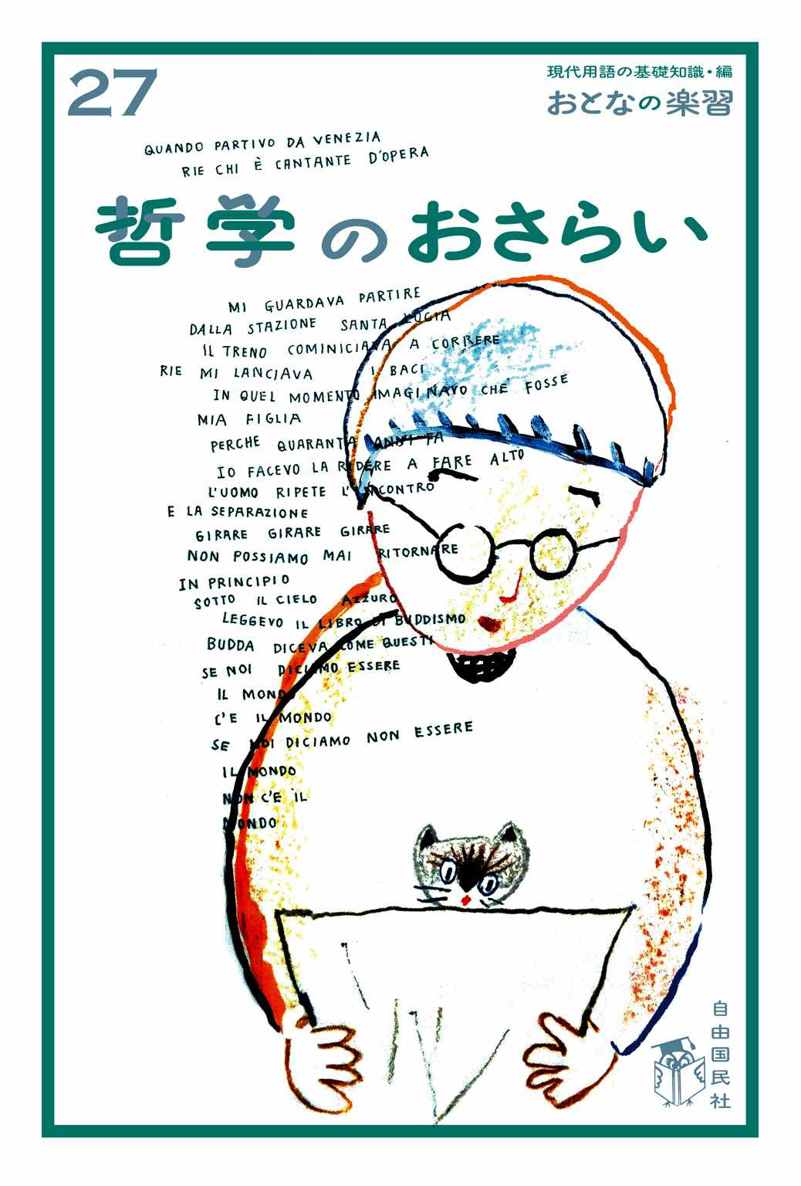 27
現代用語の基礎知識・編
おとなの楽習
QUANDO PARTIVO DA VENEZIA
RIE CHI È CANTANTE D'OPERA
哲学のおさらい
MI GUARDAVA PARTIRE
DALLA STAZIONE SANTA LUCIA
IL TRENO COMINICIAVA A CORRERE
RIE MI LANCIAVA I BACI
IN QUEL MOMENTO IMAGINAVO CHE FOSSE
MIA FIGLIA
PERCHE QUARANTA ANNI FA
IO FACEVO LA RIDERE A FARE ALTO
L'UOMO RIPETE L'INCONTRO
E LA SEPARAZIONE
GIRARE GIRARE GIRARE
NON POSSIAMO MAI RITORNARE
IN PRINCIPIO
SOTTO IL CIELO AZZURO
LEGGEVO IL LIBRO DI BUDDISMO
BUDDA DICEVA COME QUESTI
SE NOI DICIAMO ESSERE
IL MONDO
C'E IL MONDO
SE NOI DICIAMO NON ESSERE
IL MONDO
NON C'E IL
MONDO
自由国民社